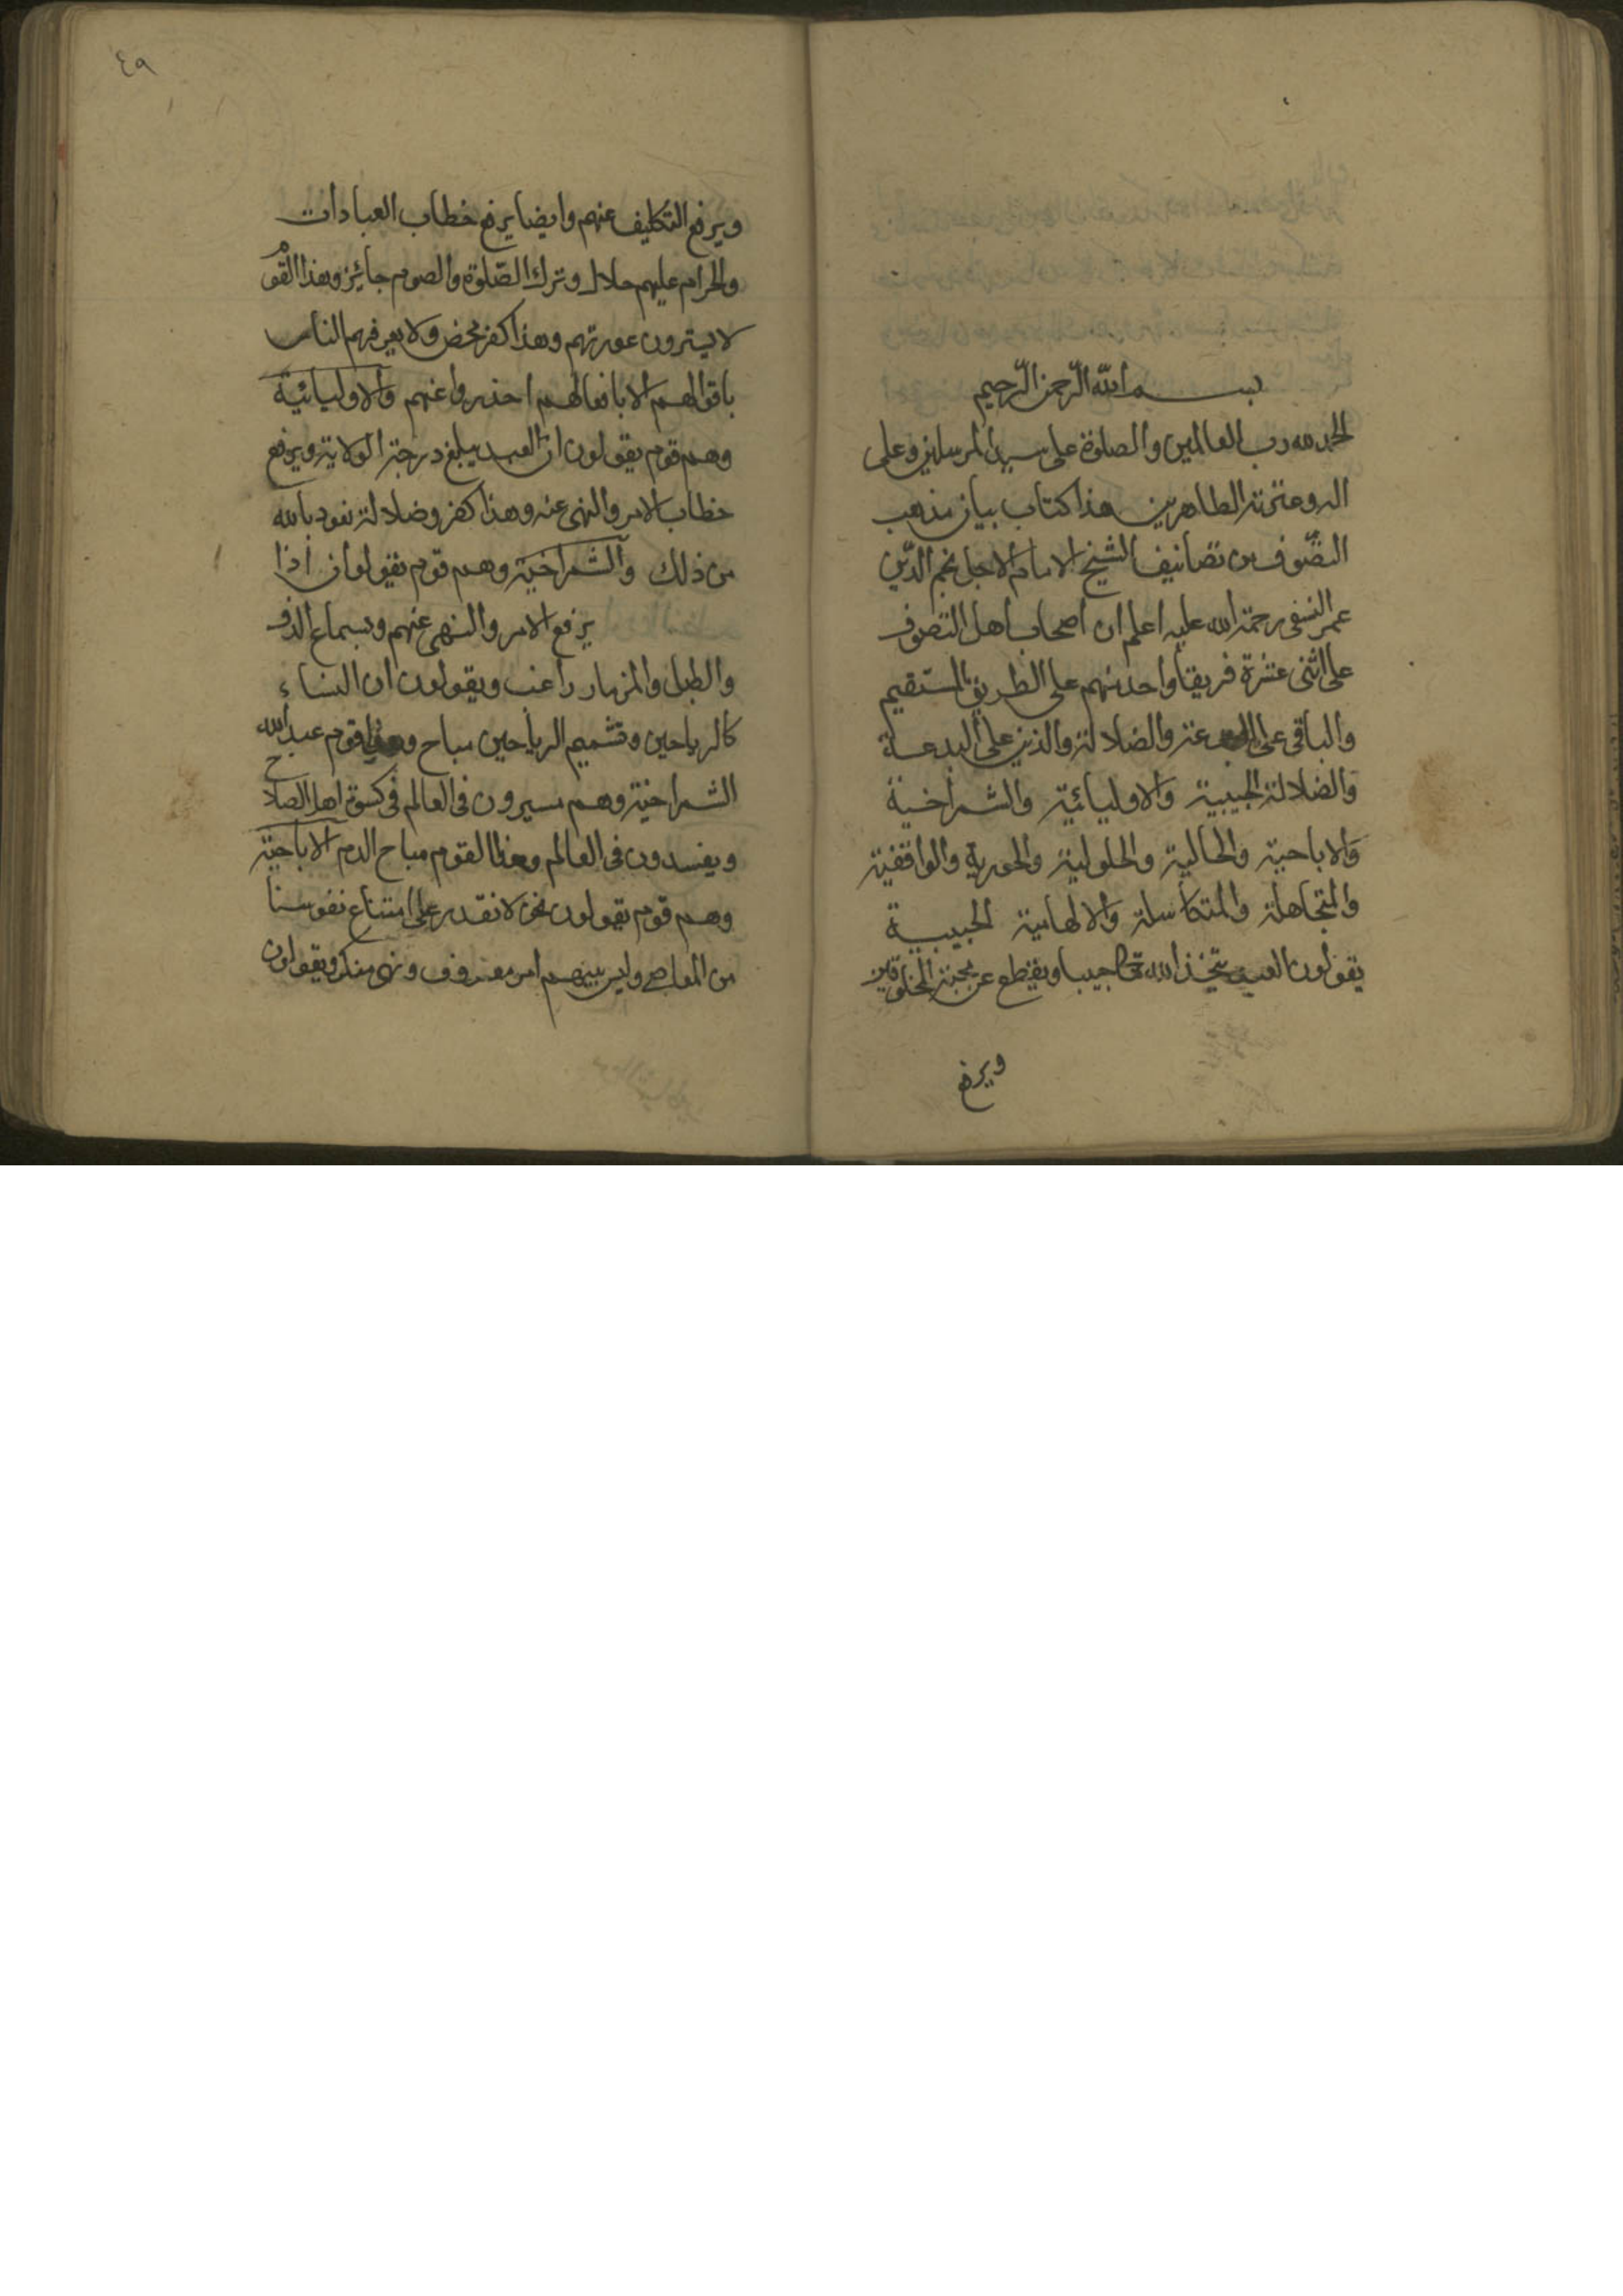 بسم الله الرحمن الرحيم
الحمد لله رب العالمين والصلوة على سيد المرسلين وعلى
اله وعترته الطاهرين هذا كتاب بيان مذهب
التصوف من تصانيف الشيخ الامام الاجل نجم الدين
عمر النسفى رحمة الله عليه اعلم ان اصحاب اهل التصوف
على اثنى عشرة فريقا واحد منهم على الطريق المستقيم
والباقى على البدعة والضلالة والذين على البدعة
والضلالة الحبيبية والاوليائية والشمراخية
والاباحية والحالية والحلولية والحورية والواقفية
والمتجاهلة والمتكاسلة والالهامية الحبيبية
يقولون العبد يتخذ الله تعا حبيبا ويقطع عن محبة المخلوقين
ويرفع
٤٩
ويرفع التكليف عنهم وايضا يرفع خطاب العبادات
والحرام عليهم حلال وترك الصلوة والصوم جائز وهذا القوم
لا يسترون عورتهم وهذا كفر محض ولا يعرفهم الناس
باقوالهم الا بافعالهم احذروا عنهم والاوليائية
وهم قوم يقولون ان العبد يبلغ درجة الولاية ويرفع
خطاب الامر والنهى عنه وهذا كفر وضلالة نعوذ بالله
من ذلك والشمراخية وهم قوم يقولون اذا
يرفع الامر والنهى عنهم وبسماع الدف
والطبل والمزمار راغب ويقولون ان النساء
كالرياحين وتشميم الرياحين مباح وهذا قوم عبد الله
الشمراخية وهم يسيرون فى العالم فى كسوة اهل الصلاح
ويفسدون فى العالم وهذا القوم مباح الدم الاباحية
وهم قوم يقولون نحن لا نقدر على امتناع نفوسنا
من المعاصى وليس بينهم امر معروف ونهى منكر ويقولون